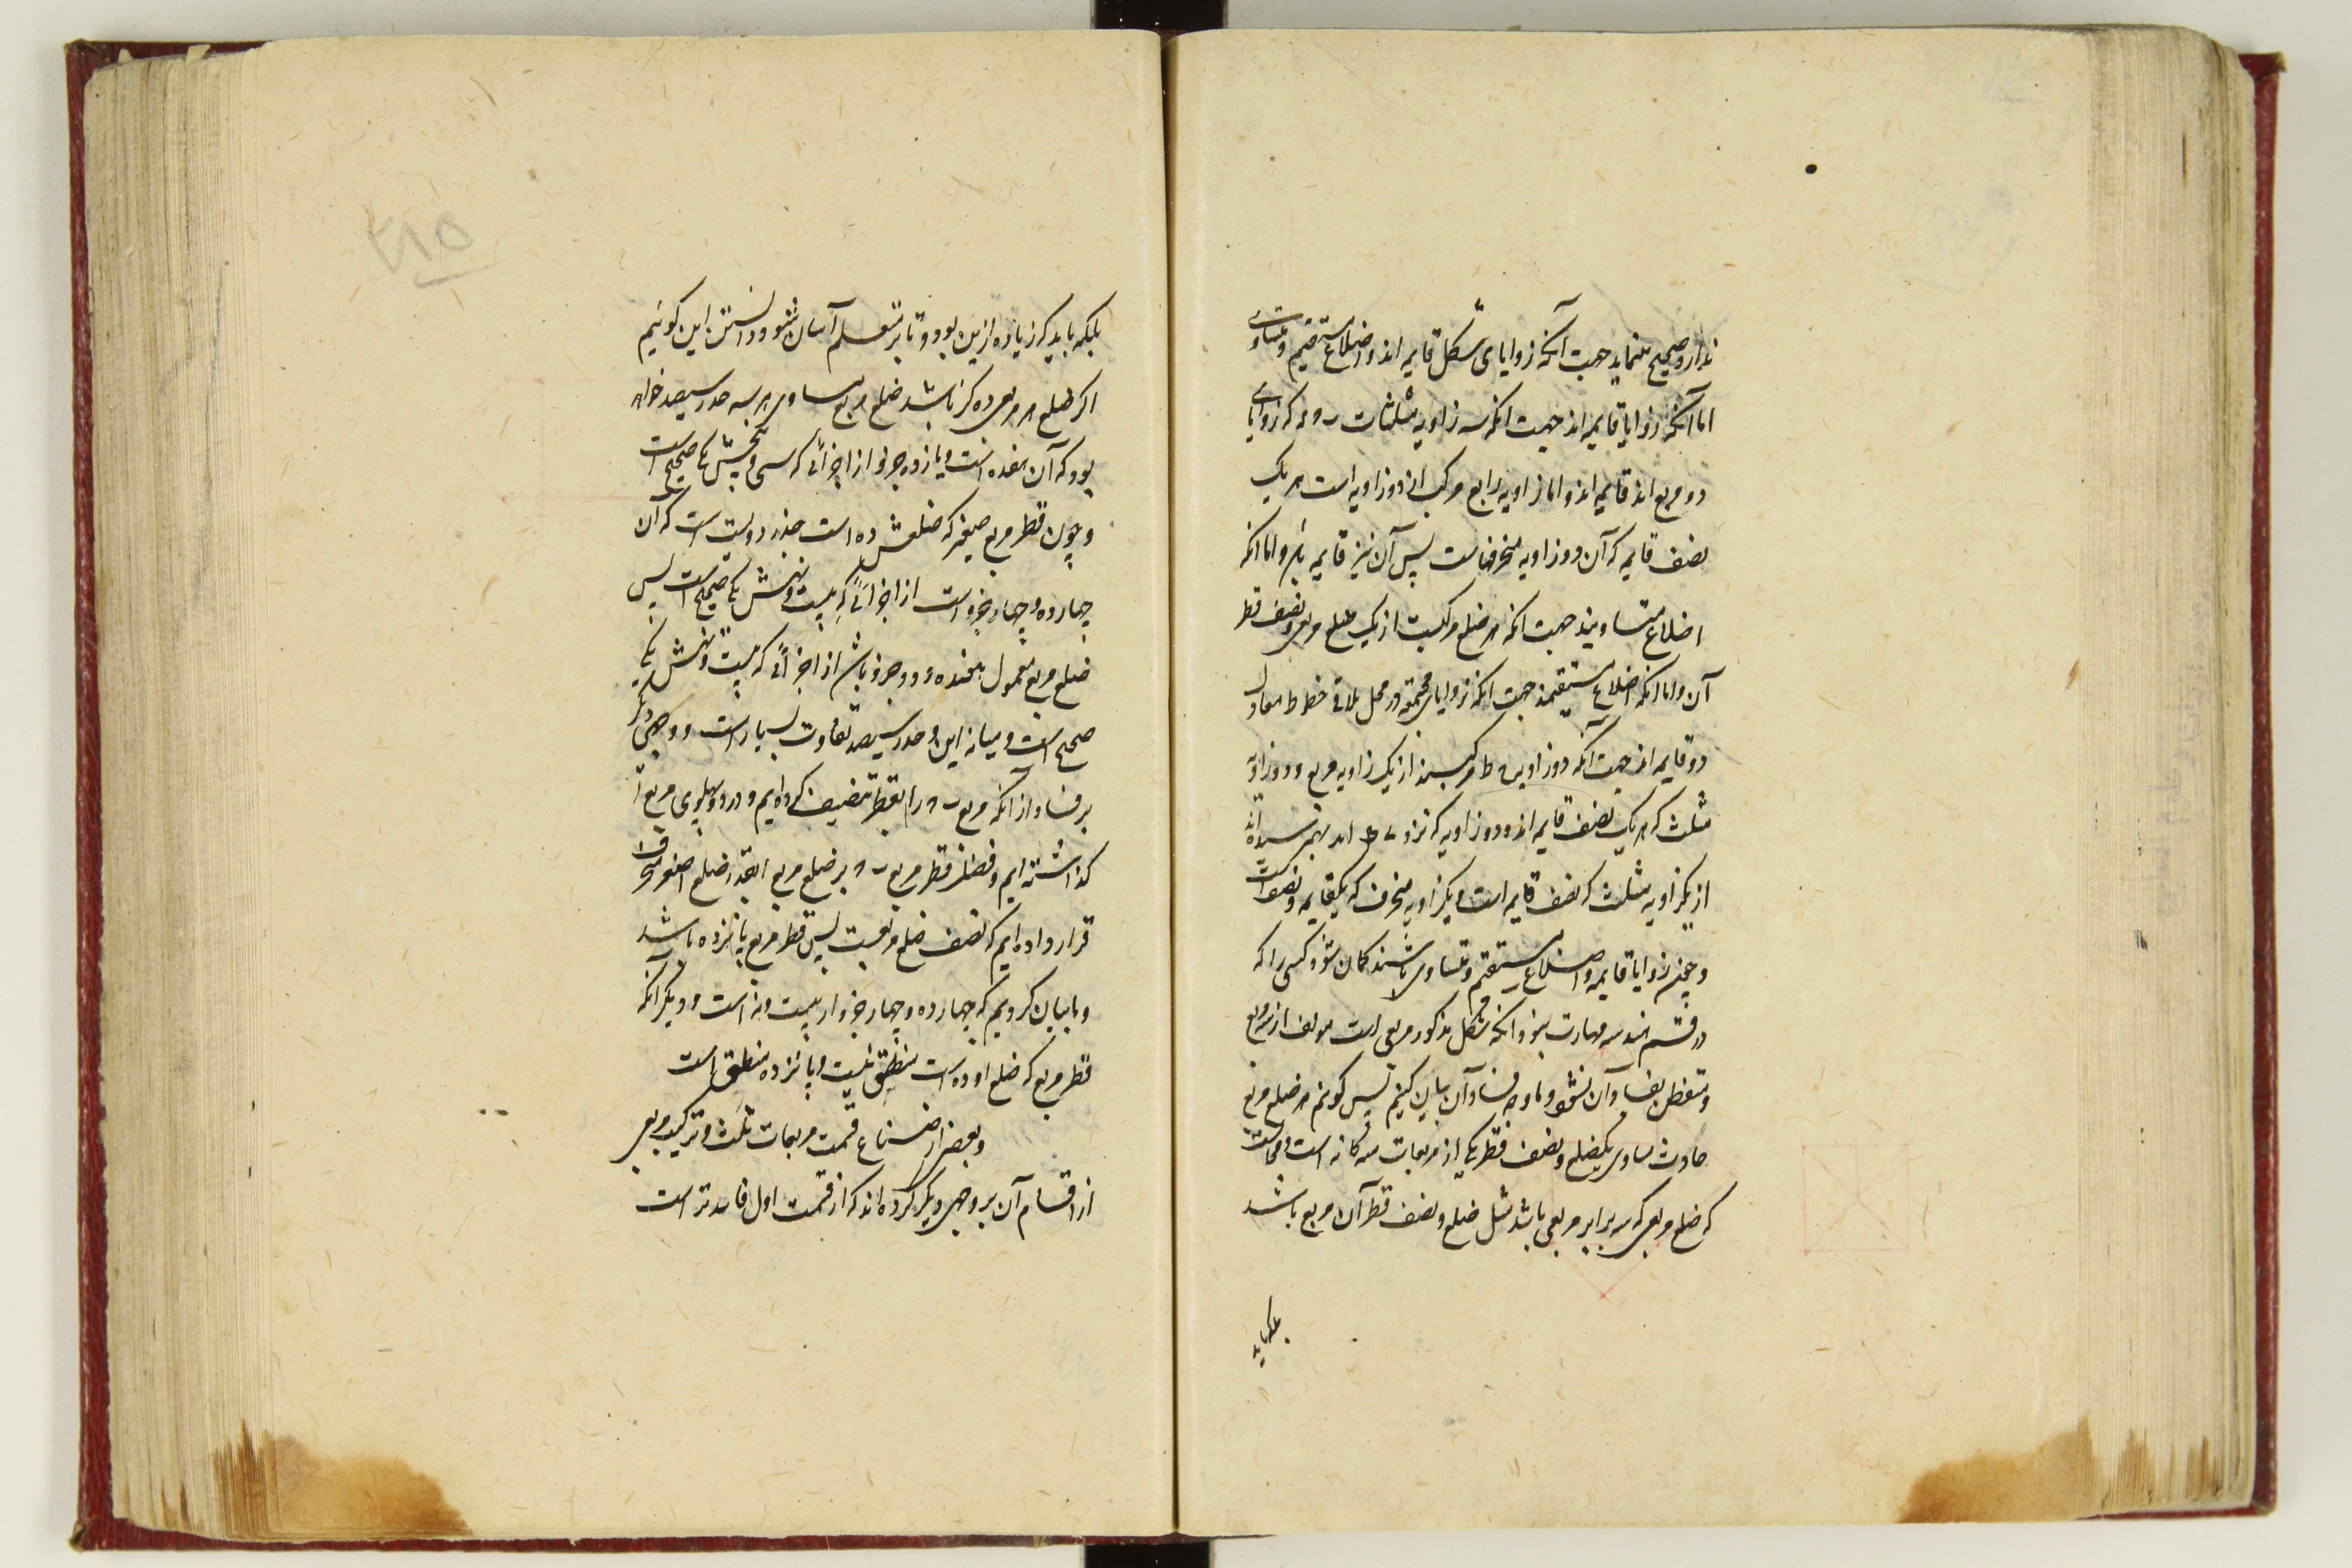 ندارد و صحیح مینماید جهت آنکه زوایای شکل قایمه اند و اضلاع مستقیم و متساوی
اما آنکه زوایا قایمه اند جهت آنکه سه زاویه مثلثات که زوایای
دو مربع اند قایمه اند و اما زاویه رابع مرکب از دو زاویه است هر یک
نصف قایمه که آن دو زاویه منحرفهاست پس آن نیز قایمه باشد و اما آنکه
اضلاع متساویند جهت آنکه هر ضلع مرکبست از یک ضلع مربعی و نصف قطر
آن و اما آنکه اضلاع مستقیمند جهت آنکه زوایای مجتمعه در محل تلاقی خطوط معادل
دو قایمه اند جهت آنکه دو زاویه ح ط مرکبند از یک زاویه مربع و دو زاویه
مثلث که هر یک نصف قایمه اند و دو زاویه که نزد ی ط اند بهم رسیده اند
از یکزاویه مثلث که نصف قایمه است و یکزاویه منحرف که یکقایمه و نصف است
و چون زوایا قایمه و اضلاع مستقیم و متساوی باشند گمان شود کسی را که
در قسم هندسه مهارت نبود آنکه شکل مذکور مربعی است مولف از سه مربع
و متفطن بفساد آن نشود و ما وجه فساد آن بیان کنیم پس گوئیم هر ضلع مربع
حادث مساوی یکضلع و نصف قطر یکی از مربعات سه گانه است و محالست
که ضلع مربعی که سه برابر مربعی باشد مثل ضلع و نصف قطر آن مربع باشد
بلکه باید
۳۸۵
بلکه باید که زیاده ازین بود و تا بر متعلم آسان شود دانستن این گوئیم
اگر ضلع هر مربعی ده گز باشد ضلع مربع مساوی هر سه جذر سیصد خواهد
بود که آن هفده است و یازده جزو از اجزائی که سی و پنجش یکی صحیح است
و چون قطر مربع صغیر که ضلعش ده است جذر دویست است که آن
چهارده و چهار جزو است از اجزائی که بیست و نهش یکی صحیح است پس
ضلع مربع معمول هفده و دو جزو باشد از اجزائی که بیست و نهش یکی
صحیح است و میانه این و جذر سیصد تفاوت بسیار است و وجهی دیگر
بر فساد از آنکه مربع ب ه را بقطر تنصیف کرده ایم و در دو پهلوی مربع ا
گذاشته ایم و فضل قطر مربع ب ه بر ضلع مربع ا بقدر ضلع اصغر منحرف
قرار داده ایم که نصف ضلع مربعست پس قطر مربع پانزده باشد
و ما بیان کردیم که چهارده و چهار جزو از بیست و نه است و دیگر آنکه
قطر مربع که ضلع او ده است منطق نیست و پانزده منطق است
و بعضی از صناع قسمت مربعات ثلث و ترکیب مربعی
از اقسام آن بر وجهی دیگر کرده اند که از قسمت اول فاسدتر است